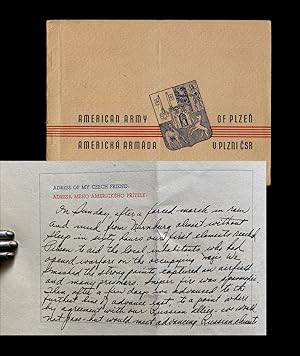 AMERICAN ARMY OF PLZEŇ
AMERICKÁ ARMÁDA V PLZNI ČSR
ADRESS OF MY CZECH FRIEND:
ADRESA MÉHO AMERICKÉHO PŘÍTELE
On Sunday, after a forced march in rain
and mud from Nurnburg almost without
sleep in sixty hours our first elements reached
Pilsen to aid the local inhabitants who had
opened warfare on the occupying nazi. We
smashed the strong points, captured an airfield
and many prisoners. Sniper fire was
Then after a few days we advanced to the
furthest line of advance east to a point where
by agreement with our Russian allies we
not press but would meet advancing Russian